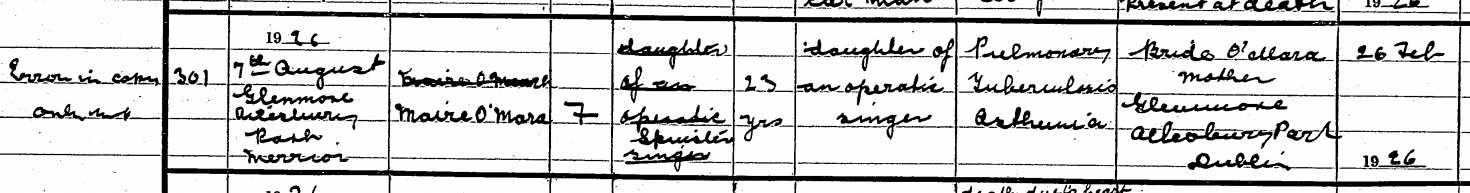 car man
Present at death
1926
Error in copy
only
301
1926
7th August
Glenmore
Ailesbury
Park
Merrion
Maire O'Mara
Maire O'Mara
F
daughter
of an
operatic
Spinster
singer
23
yrs
daughter of
an operatic
singer
Pulmonary
Tuberculosis
Asthenia
Bride O'Mara
mother
Glenmore
Ailesbury Park
Dublin
26 Feb
1926
1926
death due to heart